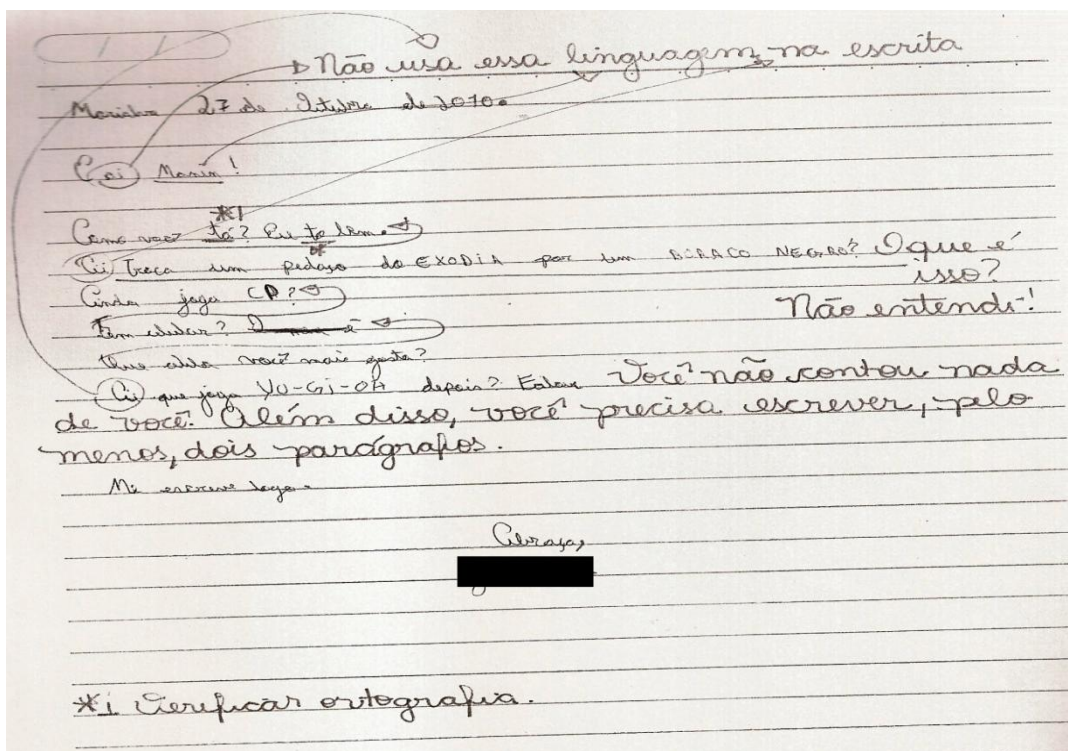 Não usa essa linguagem na escrita
27 de de 2010.
Eai !
*1
Como você tá? Eu to bem.
Aii Troca um pedaço do EXODIA por um BURACO NEGRO? O que é
isso?
Ainda joga CD?
Não entendi!
Tem celular?
Que você mais gosta?
Aii que joga YU-GI-OH depois? Você não contou nada
de você. Além disso, você precisa escrever, pelo
menos, dois parágrafos.
Mi escreve logo.
Abraços,
*1 Verificar ortografia.